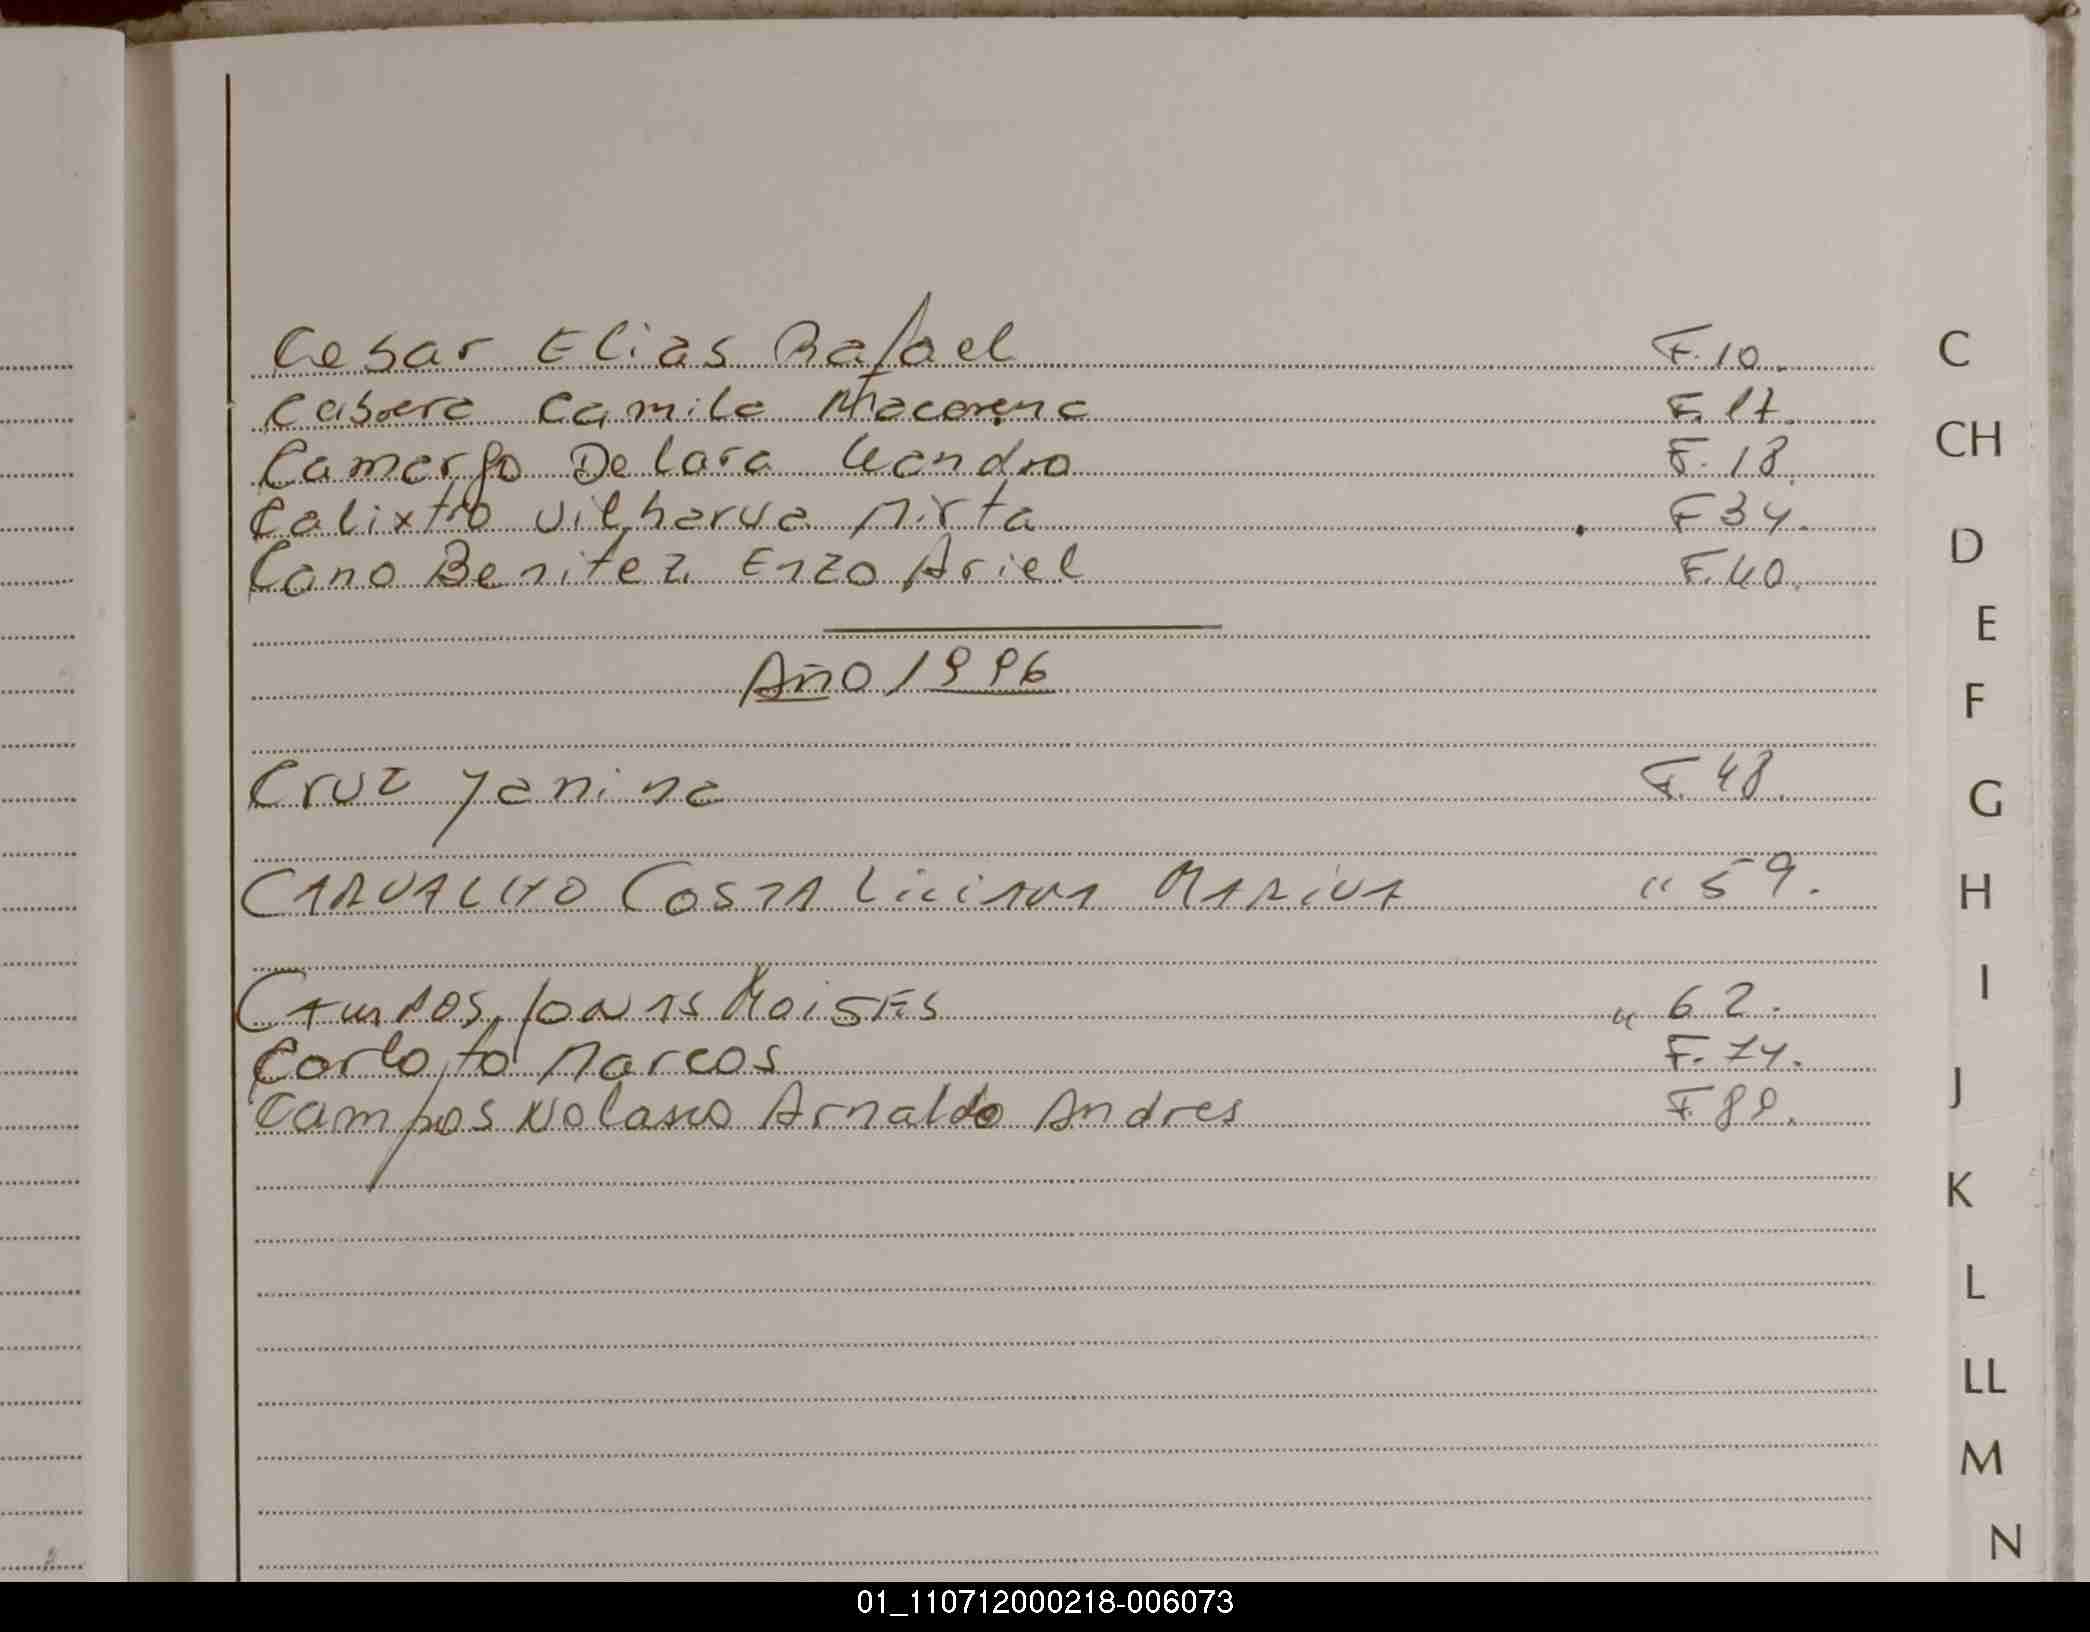 Cesar Elias Rafael F.10.
Cabrera Camila Macarena F.17.
Camargo De Lara Leandro F.18.
Calixtro Vilharva Mirta F34.
Cano Benitez Enzo Ariel F.40.
Año 1996
Cruz Yanina F.48.
CARVALHO COSTA Liliana MARINA " 59.
CAMPOS JONAS MOISES " 62.
Carloto Marcos F.74.
Campos Nolasco Arnaldo Andres F.89.
C
CH
D
E
F
G
H
I
J
K
L
LL
M
N
01_110712000218-006073